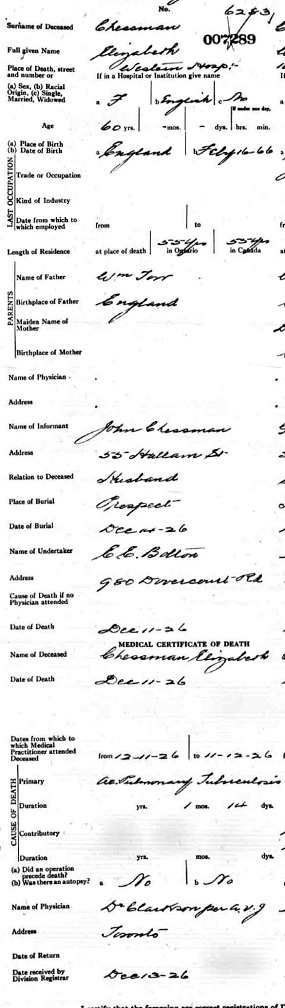 No. 6283
007289
Surname of Deceased Chessman
Full given Name Elizabeth
Place of Death, street and number or Western Hosp.
If in a Hospital or Institution give name
(a) Sex, (b) Racial Origin, (c) Single, Married, Widowed a F b English c
If under one day,
Age 60 yrs. - mos. - dys. hrs. min.
(a) Place of Birth
(b) Date of Birth a England b Feby 16-66
LAST OCCUPATION
Trade or Occupation
Kind of Industry
Date from which to which employed from to
Length of Residence at place of death 55 yrs in Ontario 55 yrs in Canada
PARENTS
Name of Father Wm Torr
Birthplace of Father England
Maiden Name of Mother
Birthplace of Mother
Name of Physician
Address
Name of Informant John Chessman
Address 55 Hallam St
Relation to Deceased Husband
Place of Burial Prospect
Date of Burial Dec 14-26
Name of Undertaker E.E. Bolton
Address 980 Dovercourt Rd
Cause of Death if no Physician attended
Date of Death Dec 11-26
MEDICAL CERTIFICATE OF DEATH
Name of Deceased Chessman Elizabeth
Date of Death Dec 11-26
Dates from which to which Medical Practitioner attended Deceased from 12-11-26 to 11-12-26
CAUSE OF DEATH
Primary ac. Pulmonary Tuberculosis
Duration yrs. 1 mos. 14 dys.
Contributory
Duration yrs. mos. dys.
(a) Did an operation precede death?
(b) Was there an autopsy? a No b No
Name of Physician Dr Clarkson per
Address Toronto
Date of Return
Date received by Division Registrar Dec 13-26